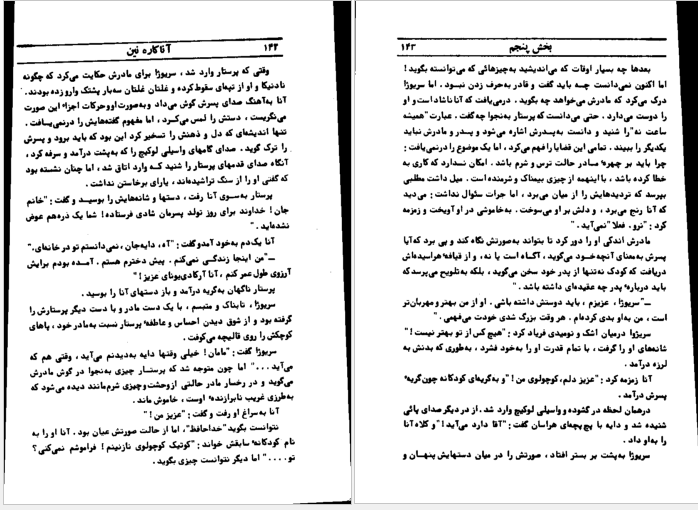 ۱۴۲ آناکاره نین
وقتی که پرستار وارد شد ، سریوژا برای مادرش حکایت می‌کرد که چگونه
نادنیکا و او از تپه‌ای سقوط کرده و غلتان غلتان سه‌بار پشتک وارو زده بودند .
آنا به‌آهنگ صدای پسرش گوش می‌داد و به‌صورت او و حرکات اجزاء این صورت
می‌نگریست ، دستش را لمس می‌کرد ، اما مفهوم گفته‌هایش را درنمی‌یافت .
تنها اندیشه‌ای که دل و ذهنش را تسخیر کرد این بود که باید برود و پسرش
را ترک گوید . صدای گامهای واسیلی لوکیچ را که به‌پشت درآمد و سرفه کرد ،
آنگاه صدای قدمهای پرستار را شنید که وارد اتاق شد ، اما چنان نشسته بود
که گفتی او را از سنگ تراشیده‌اند ، یارای برخاستن نداشت .
پرستار به‌سوی آنا رفت ، دستها و شانه‌هایش را بوسید و گفت : "خانم
جان ! خداوند برای روز تولد پسرمان شادی فرستاده ! شما یک ذره‌هم عوض
نشده‌اید . "
آنا یک‌دم به‌خود آمد و گفت : "آه ، دایه‌جان ، نمی‌دانستم تو در خانه‌ای . "
ــ "من اینجا زندگی نمی‌کنم . پیش دخترم هستم . آمده بودم برایش
آرزوی طول عمر کنم ، آنا آرکادی‌یونای عزیز ! "
پرستار ناگهان به‌گریه درآمد و باز دستهای آنا را بوسید .
سریوژا ، تابناک و متبسم ، با یک دست مادر و با دست دیگر پرستارش را
گرفته بود و از شوق دیدن احساس و عاطفه پرستار نسبت به‌مادر خود ، پاهای
کوچکش را روی قالیچه می‌کوفت .
سریوژا گفت : "مامان ! خیلی وقتها دایه به‌دیدنم می‌آید ، وقتی هم که
می‌آید . . . " اما چون متوجه شد که پرستار چیزی به‌نجوا در گوش مادرش
می‌گوید و در رخسار مادر حالتی از وحشت و چیزی شرم‌مانند دیده می‌شود که
به‌طرزی غریب نابرازنده اوست ، خاموش ماند .
آنا به‌سراغ او رفت و گفت : "عزیز من ! "
نتوانست بگوید "خداحافظ" ، اما از حالت صورتش عیان بود . آنا او را به
نام کودکانه سابقش خواند : "کوتیک کوچولوی نازنینم ! فراموشم نمی‌کنی ؟
تو . . . . " اما دیگر نتوانست چیزی بگوید .
بخش پنجم ۱۴۳
بعدها چه بسیار اوقات که می‌اندیشید به‌چیزهائی که می‌توانسته بگوید !
اما اکنون نمی‌دانست چه باید گفت و قادر به‌حرف زدن نبود . اما سریوژا
درک می‌کرد که مادرش می‌خواهد چه بگوید . درمی‌یافت که آنا ناشاد است و او
را دوست می‌دارد . حتی می‌دانست که پرستار به‌نجوا چه گفت . عبارت "همیشه
ساعت نه" را شنید و دانست به‌پدرش اشاره می‌شود و پدر و مادرش نباید
یکدیگر را ببینند . تمامی این قضایا را فهم می‌کرد ، اما یک موضوع را درنمی‌یافت :
چرا باید بر چهره مادر حالت ترس و شرم باشد . امکان نداشت که کاری به
خطا کرده باشد ، با اینهمه از چیزی بیمناک و شرمنده است . میل داشت مطلبی
بپرسد که تردیدهایش را از میان می‌برد ، اما جرات سؤال نداشت : می‌دید
که آنا رنج می‌برد ، و دلش بر او می‌سوخت . به‌خاموشی در او آویخت و زمزمه
کرد : "نرو . فعلا نمی‌آید . "
مادرش اندکی او را دور کرد تا بتواند به‌صورتش نگاه کند و پی برد که آیا
پسرش به‌معنای آنچه خود می‌گوید ، آگاه است یا نه ، و از قیافه هراسیده‌اش
دریافت که کودک نه‌تنها از پدر خود سخن می‌گوید ، بلکه به‌تلویح می‌پرسد که
باید درباره پدر چه عقیده‌ای داشته باشد . "
ــ "سریوژا ، عزیزم ، باید دوستش داشته باشی . او از من بهتر و مهربان‌تر
است ، من به‌او بدی کرده‌ام . هر وقت بزرگ شدی خودت می‌فهمی . "
سریوژا درمیان اشک و نومیدی فریاد کرد : "هیچ کس از تو بهتر نیست ! "
شانه‌های او را گرفت ، با تمام قدرت او را به‌خود فشرد ، به‌طوری که بدنش به
لرزه درآمد .
آنا زمزمه کرد : "عزیز دلم ، کوچولوی من ! " و به‌گریه‌ای کودکانه چون گریه
پسرش درآمد .
درهمان لحظه در گشوده و واسیلی لوکیچ وارد شد . از در دیگر صدای پائی
شنیده شد و دایه با پچ‌پچه‌ای هراسان گفت : "آقا دارد می‌آید ! " و کلاه آنا
را به‌او داد .
سریوژا به‌پشت بر بستر افتاد ، صورتش را در میان دستهایش پنهان و